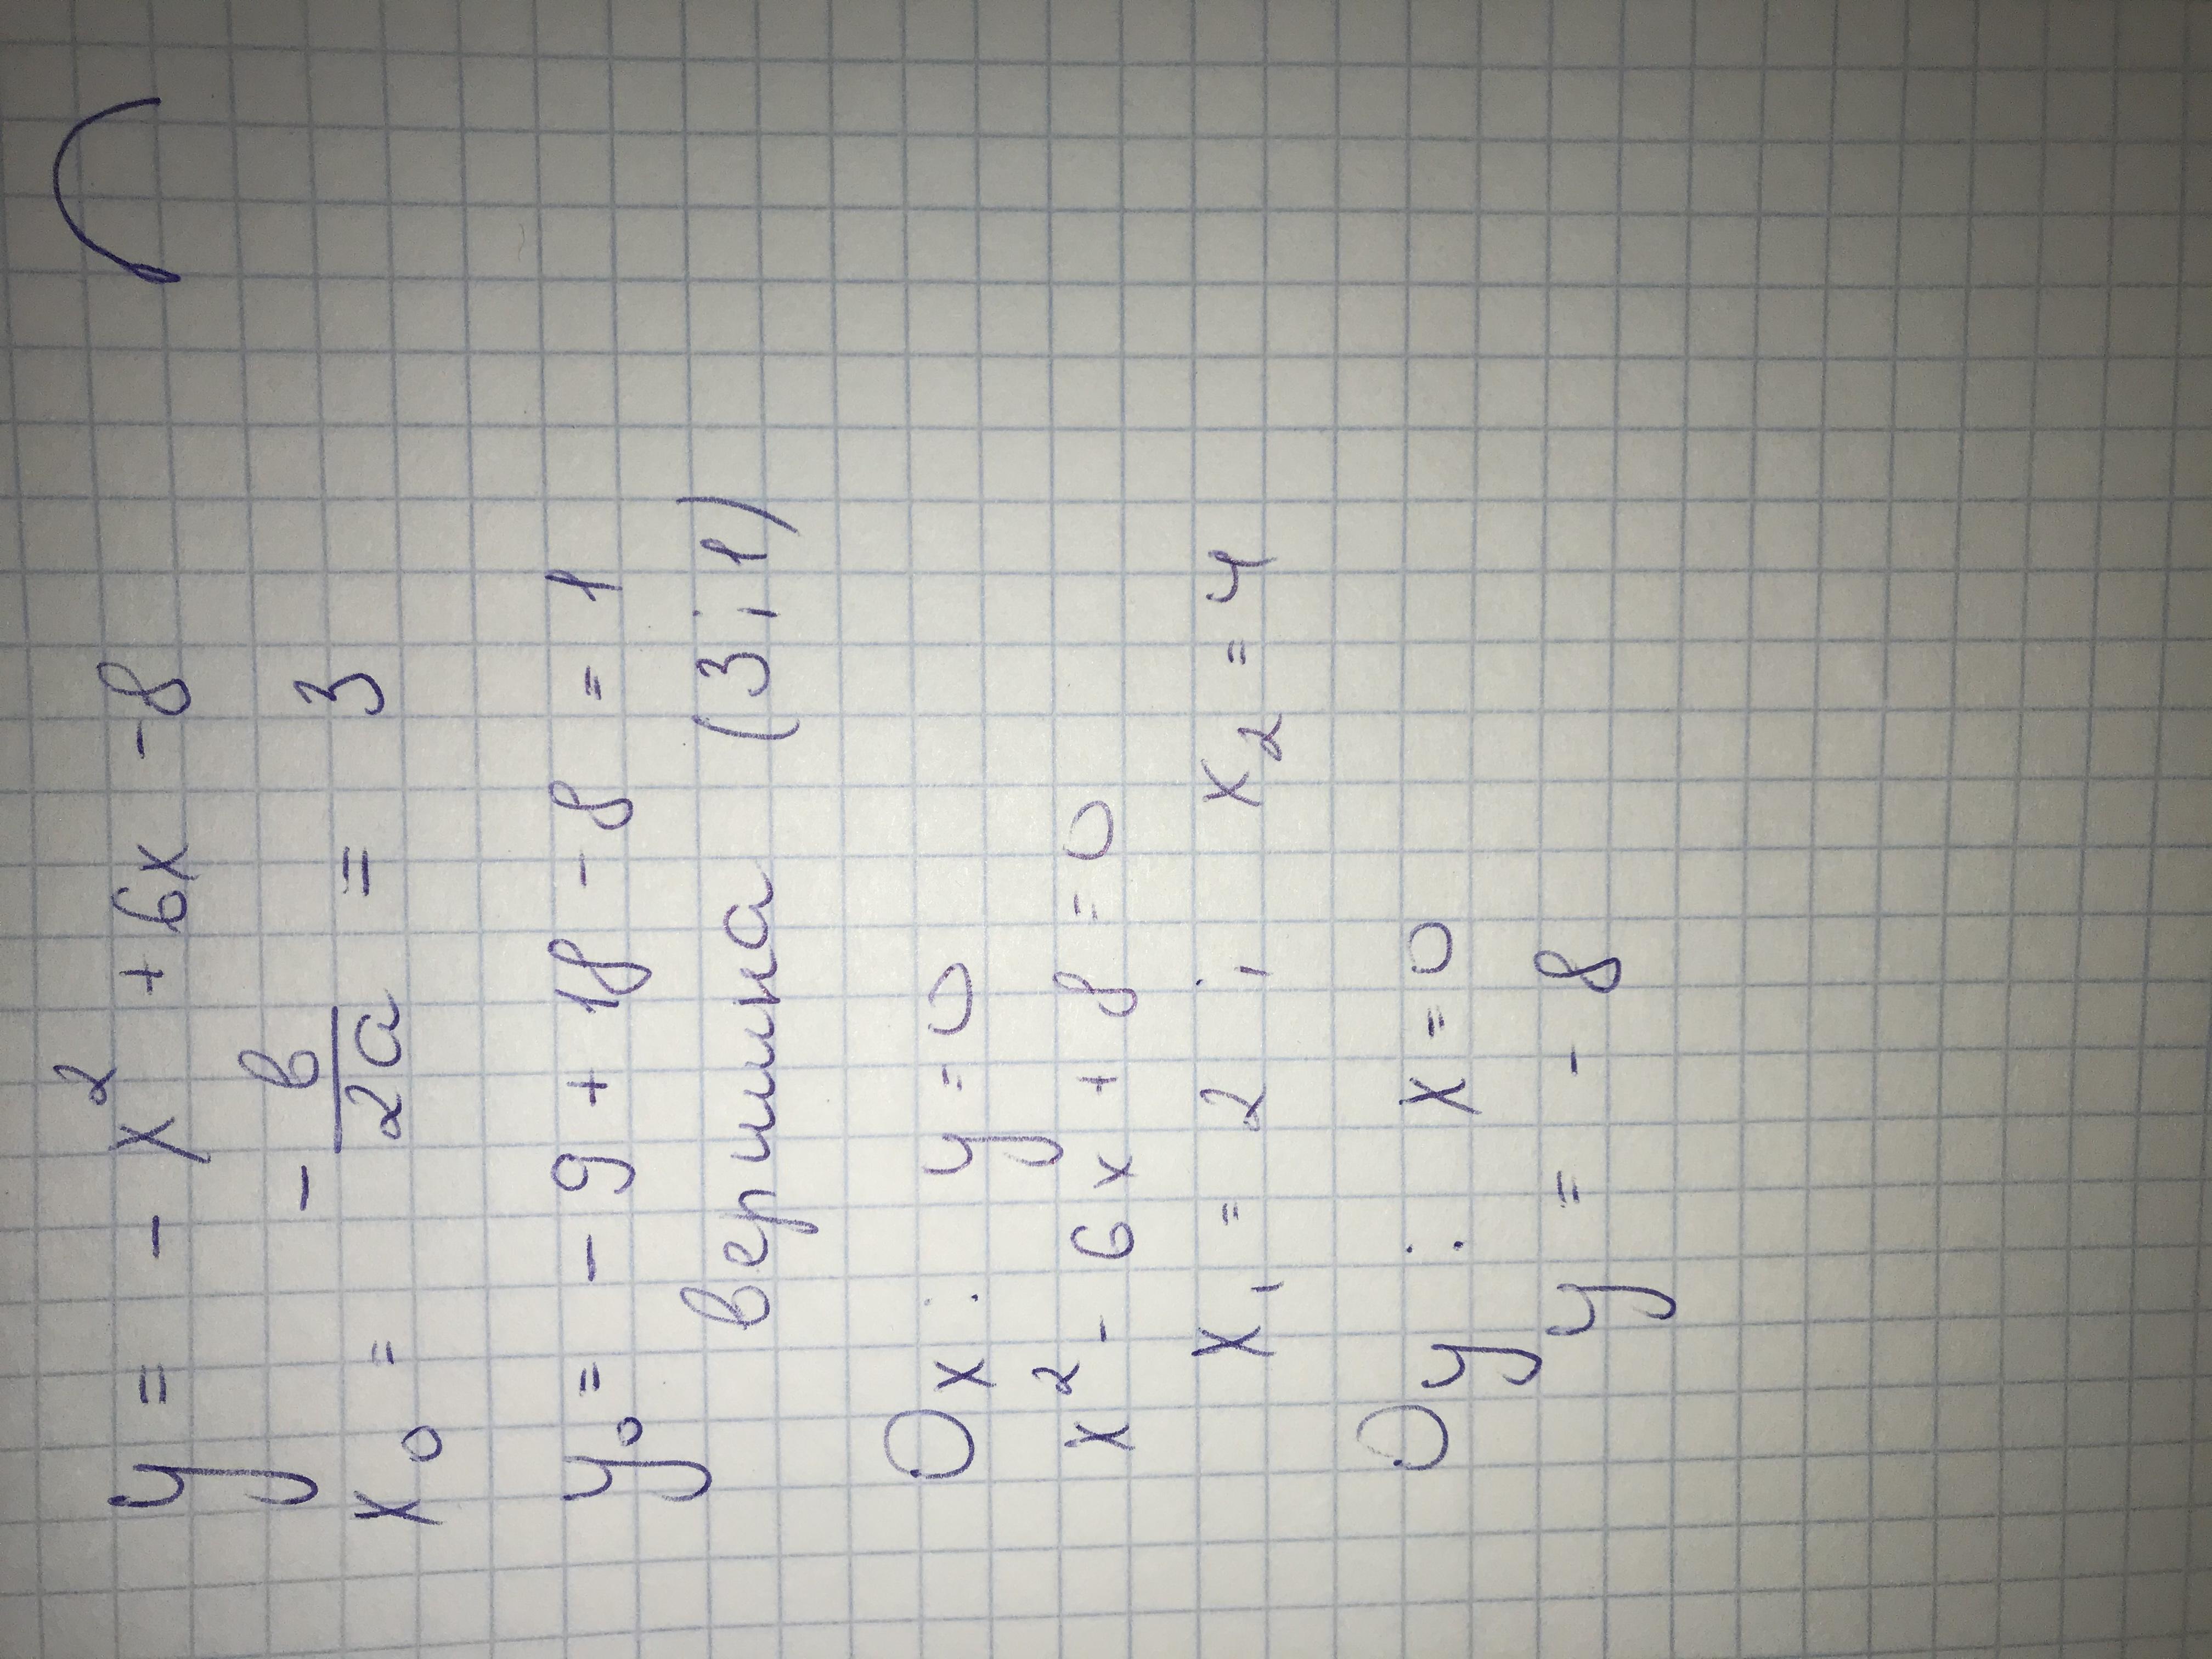 y = - x² + 6x - 8
x₀ = - в/2a = 3
y₀ = - 9 + 18 - 8 = 1
вершина (3;1)
Ox: y = 0
x² - 6x + 8 = 0
x₁ = 2 ; x₂ = 4
Oy: x = 0
y = - 8